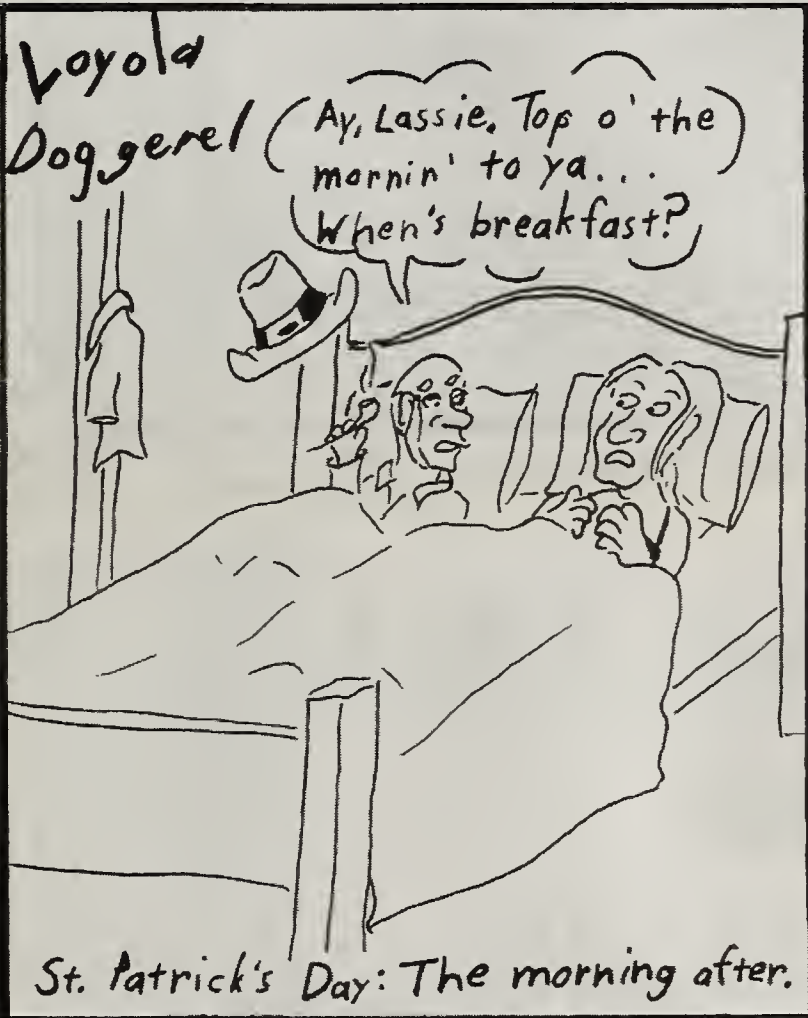 Loyola
Doggerel
Ay, Lassie. Top o' the
mornin' to ya...
When's breakfast?
St. Patrick's Day: The morning after.